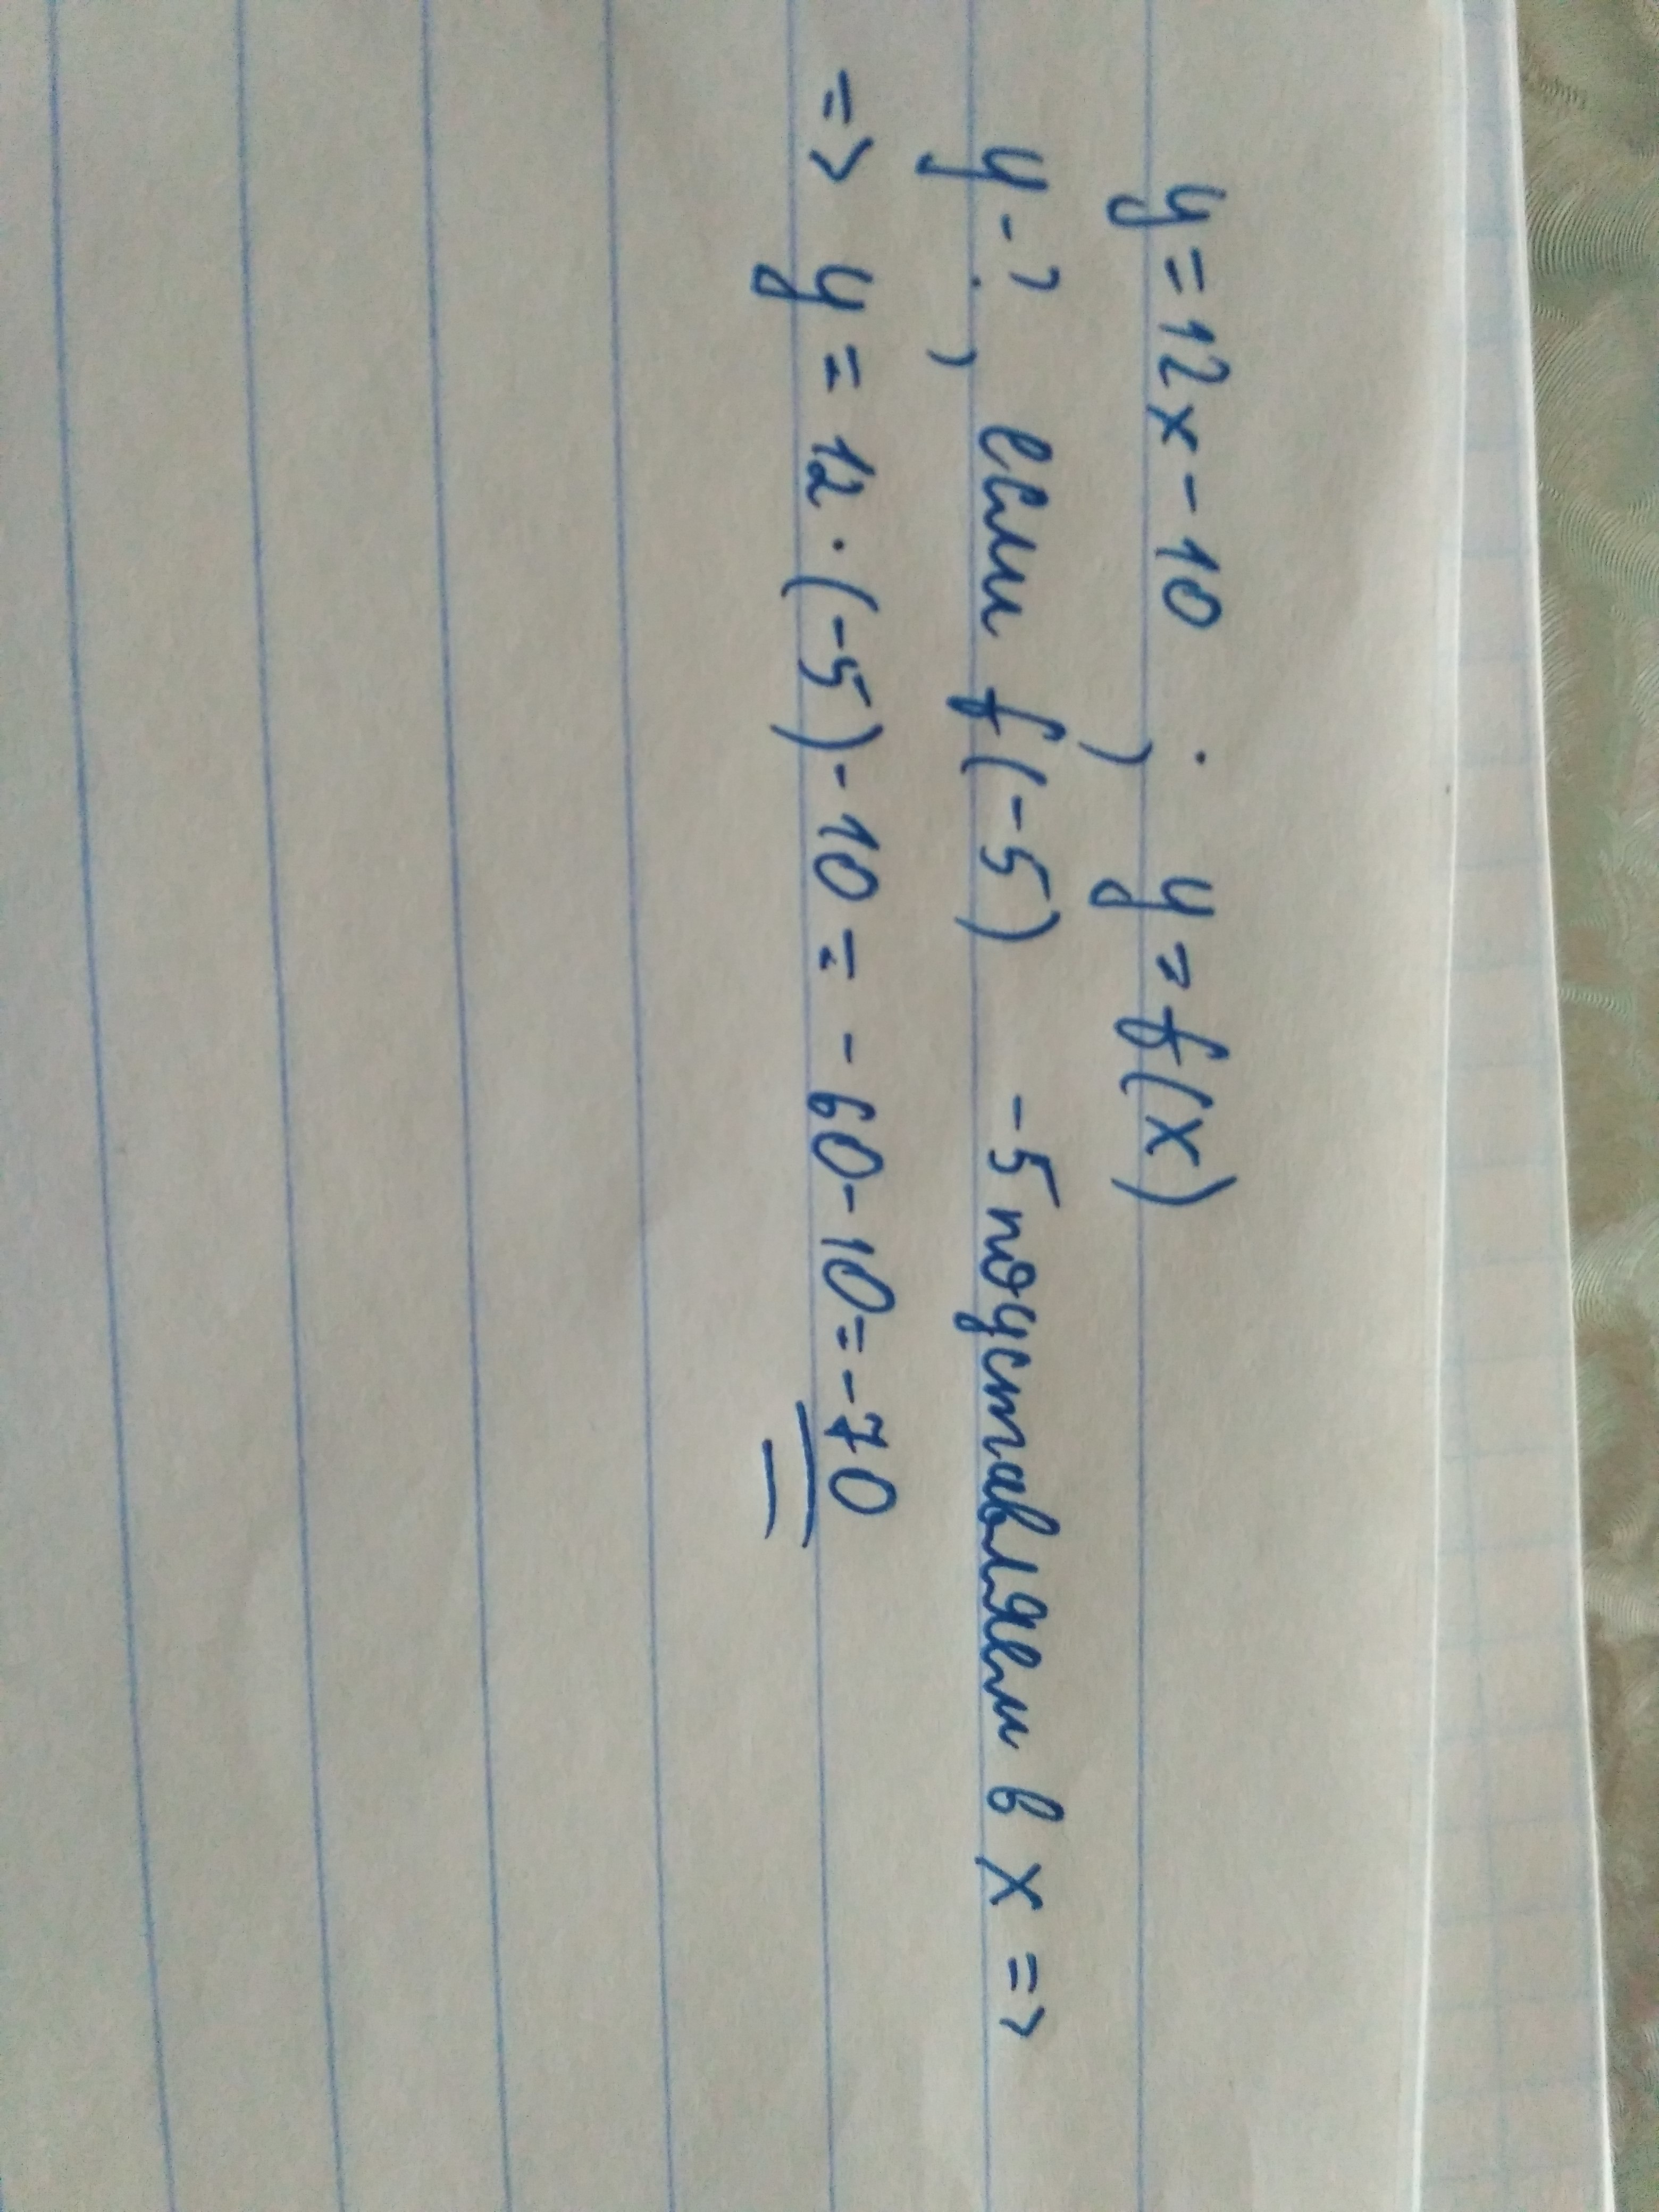 y = 12x - 10 ; y = f(x)
y - ? , если f(-5) -5 подставляем в x =>
=> y = 12 · (-5) - 10 = - 60 - 10 = - 70